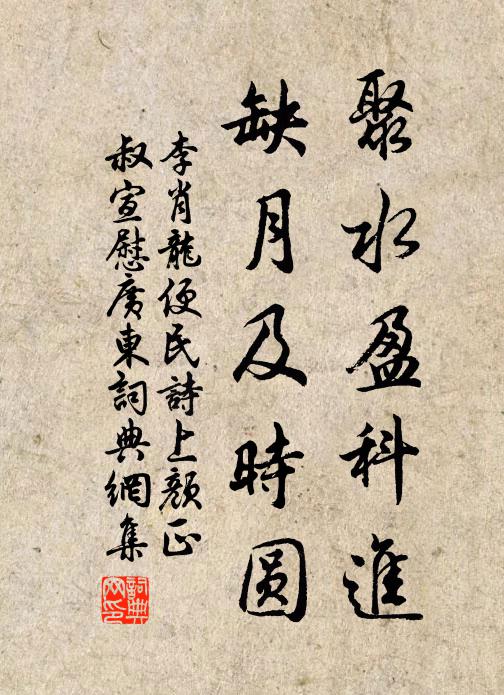 聚水盈科進
缺月及時圓
李肖龍便民詩上顏正
叔宣慰廣東詞典網集
詞典
网印